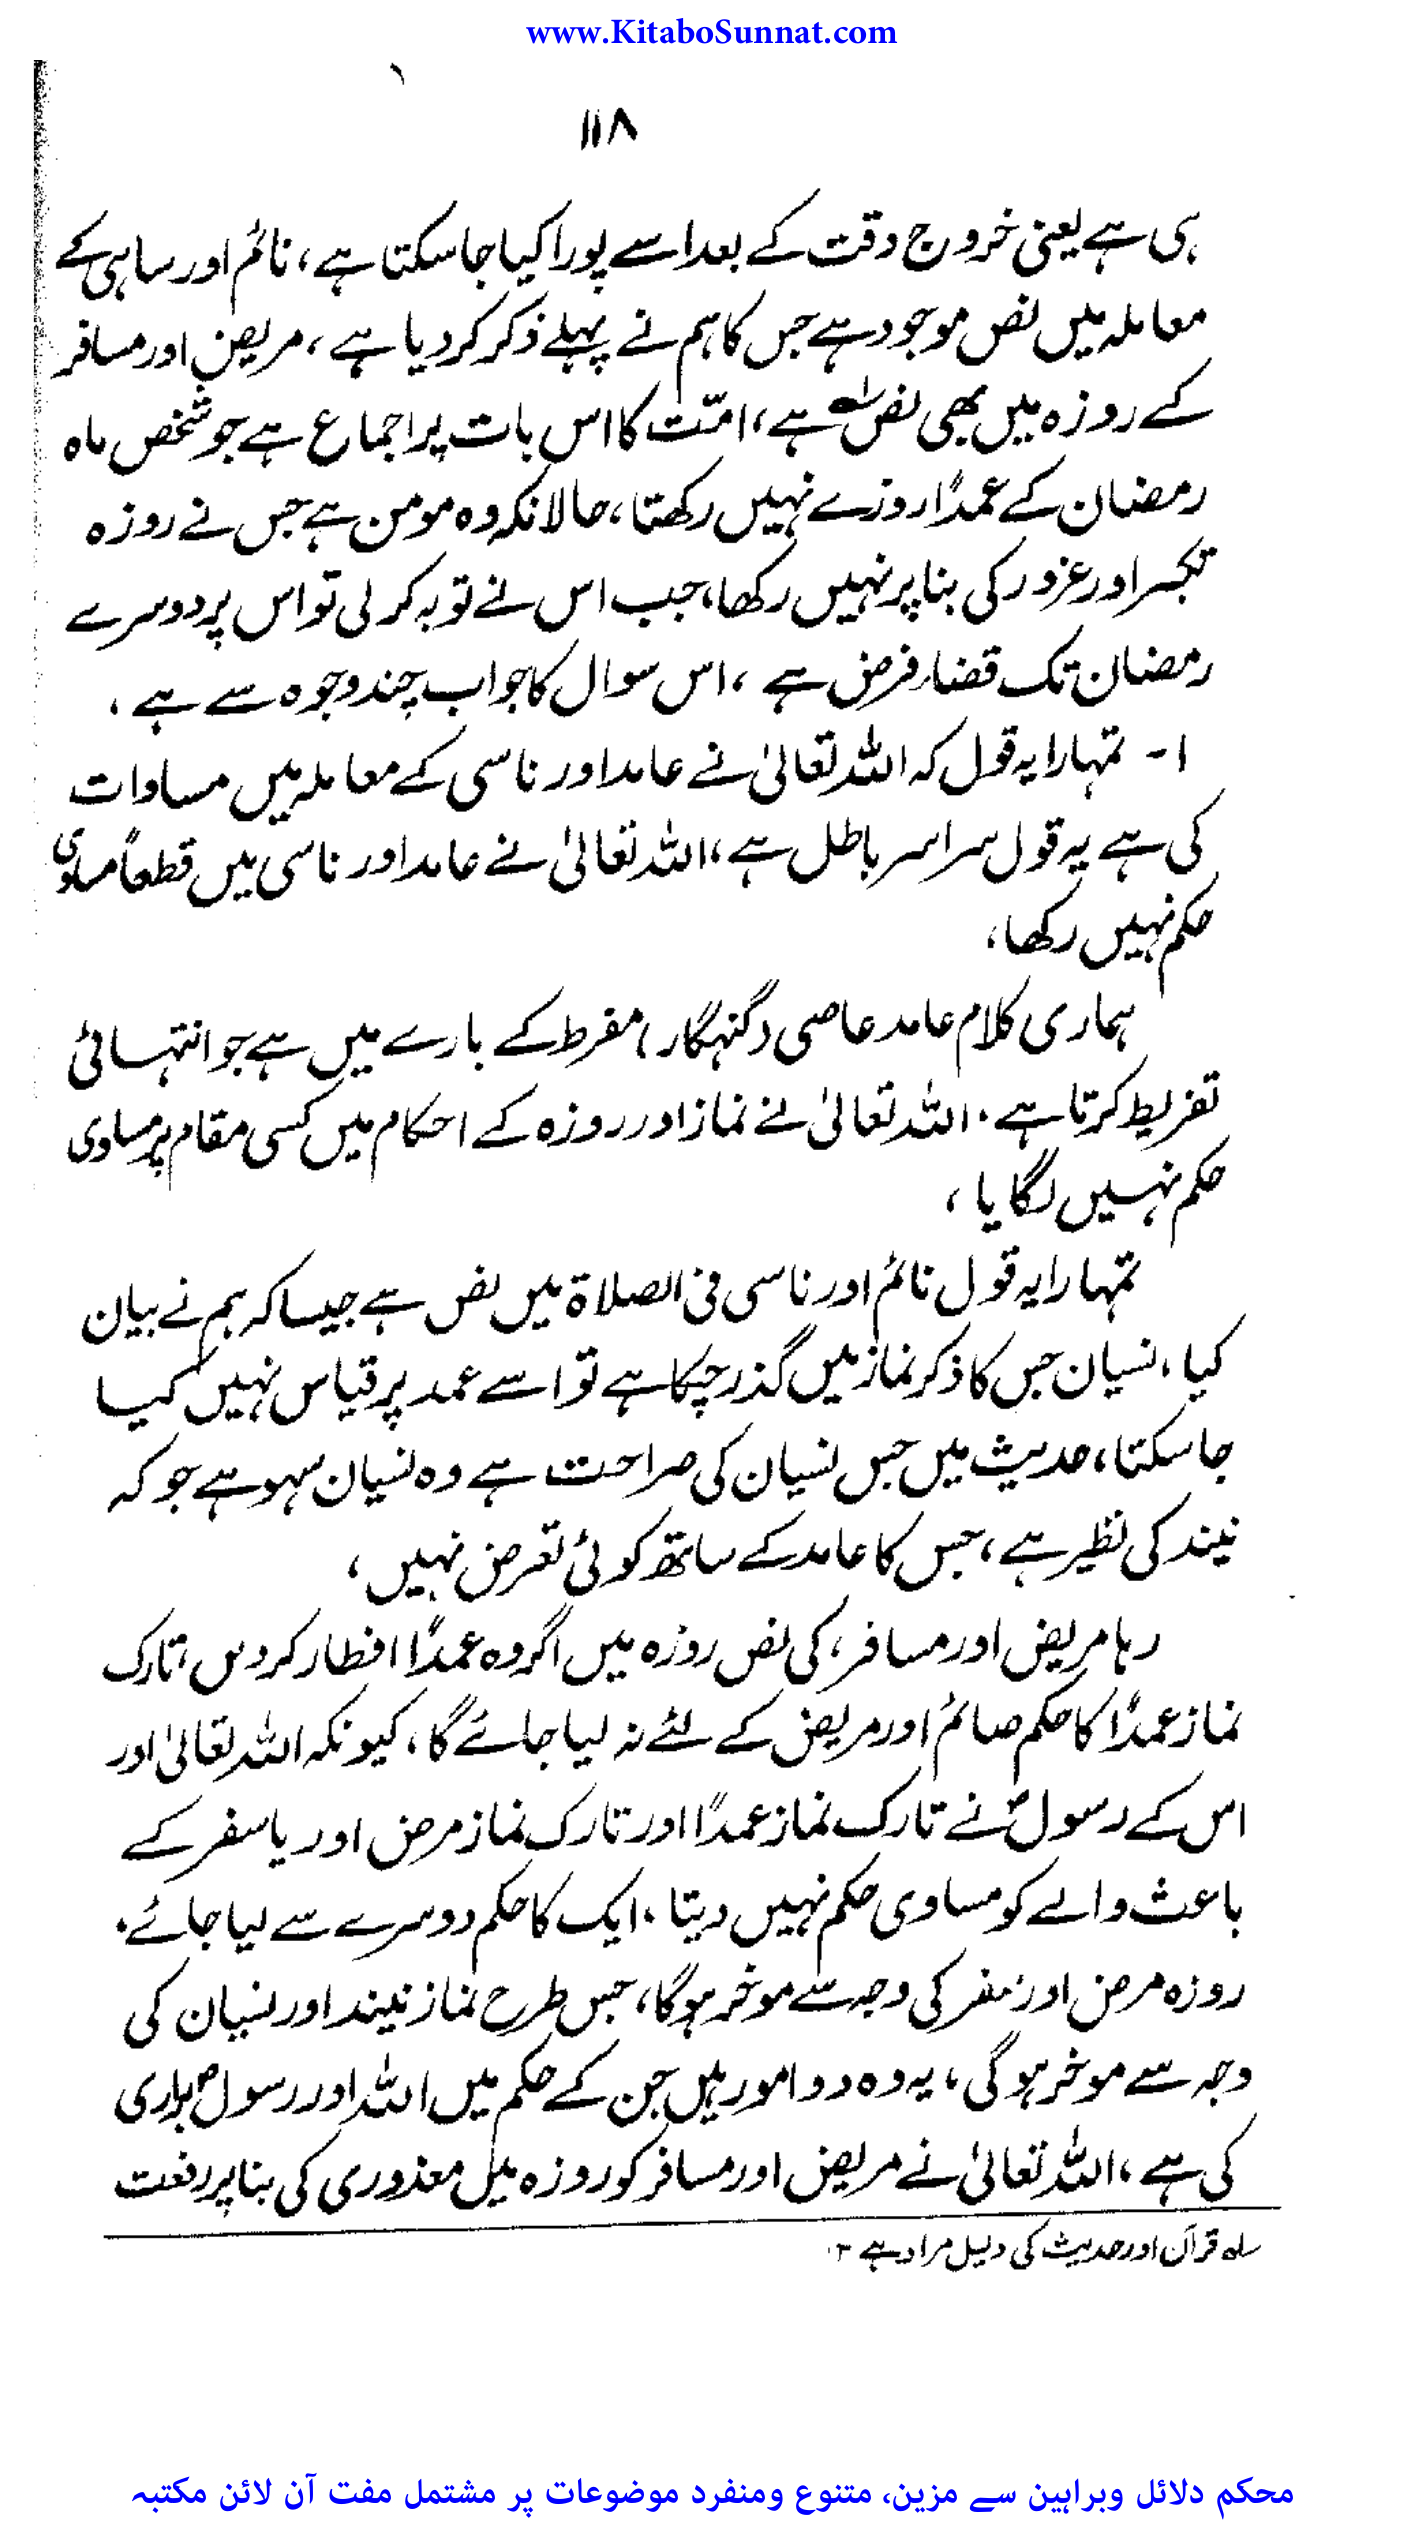 www.KitaboSunnat.com
۱۱۸
ہی ہے یعنی خروج وقت کے بعد اسے پورا کیا جاسکتا ہے، نائم اور ساہی کے
معاملہ میں نص موجود ہے جس کا ہم نے پہلے ذکر کر دیا ہے، مریض اور مسافر
کے روزہ میں بھی نص لہ ہے، امّت کا اس بات پر اجماع ہے جو شخص ماہ
رمضان کے عمداً روزے نہیں رکھتا، حالانکہ وہ مومن ہے جس نے روزہ
تکبر اور غرور کی بنا پر نہیں رکھا، جب اس نے توبہ کر لی تو اس پر دوسرے
رمضان تک قضار فرض ہے، اس سوال کا جواب چند وجوہ سے ہے ۔
۱- تمہارا یہ قول کہ اللہ تعالیٰ نے عامد اور ناسی کے معاملہ میں مساوات
کی ہے یہ قول سراسر باطل ہے، اللہ تعالیٰ نے عامد اور ناسی میں قطعاً مساوی
حکم نہیں رکھا،
ہماری کلام عامد عاصی (گنہگار) مفرط کے بارے میں ہے جو انتہائی
تفریط کرتا ہے ۔ اللہ تعالیٰ نے نماز اور روزہ کے احکام میں کسی مقام پر مساوی
حکم نہیں لگایا ،
تمہارا یہ قول نائم اور ناسی فی الصلاۃ میں نص ہے جیسا کہ ہم نے بیان
کیا ، نسیان جس کا ذکر نماز میں گذر چکا ہے تو اسے عمد پر قیاس نہیں کیا
جاسکتا، حدیث میں جس نسیان کی صراحت ہے وہ نسیان سہو ہے جو کہ
نیند کی نظیر ہے، جس کا عامد کے ساتھ کوئی تعرض نہیں،
رہا مریض اور مسافر، کی نص روزہ میں اگر وہ عمداً افطار کردیں، تارک
نماز عمداً کا حکم صائم اور مریض کے لئے نہ لیا جائے گا، کیونکہ اللہ تعالیٰ اور
اس کے رسولؐ نے تارک نماز عمداً اور تارک نماز مرض اور یا سفر کے
باعث والے کو مساوی حکم نہیں دیتا ، ایک کا حکم دوسرے سے لیا جائے۔
روزہ مرض اور سفر کی وجہ سے موخر ہوگا، جس طرح نماز نیند اور نسیان کی
وجہ سے موخر ہوگی، یہ وہ دو امور ہیں جن کے حکم میں اللہ اور رسولؐ برابری
کی ہے، اللہ تعالیٰ نے مریض اور مسافر کو روزہ میں معذوری کی بنا پر رفعت
لہ قرآن اور حدیث کی دلیل مراد ہے ۱۲
محکم دلائل وبراہین سے مزین، متنوع ومنفرد موضوعات پر مشتمل مفت آن لائن مکتبہ